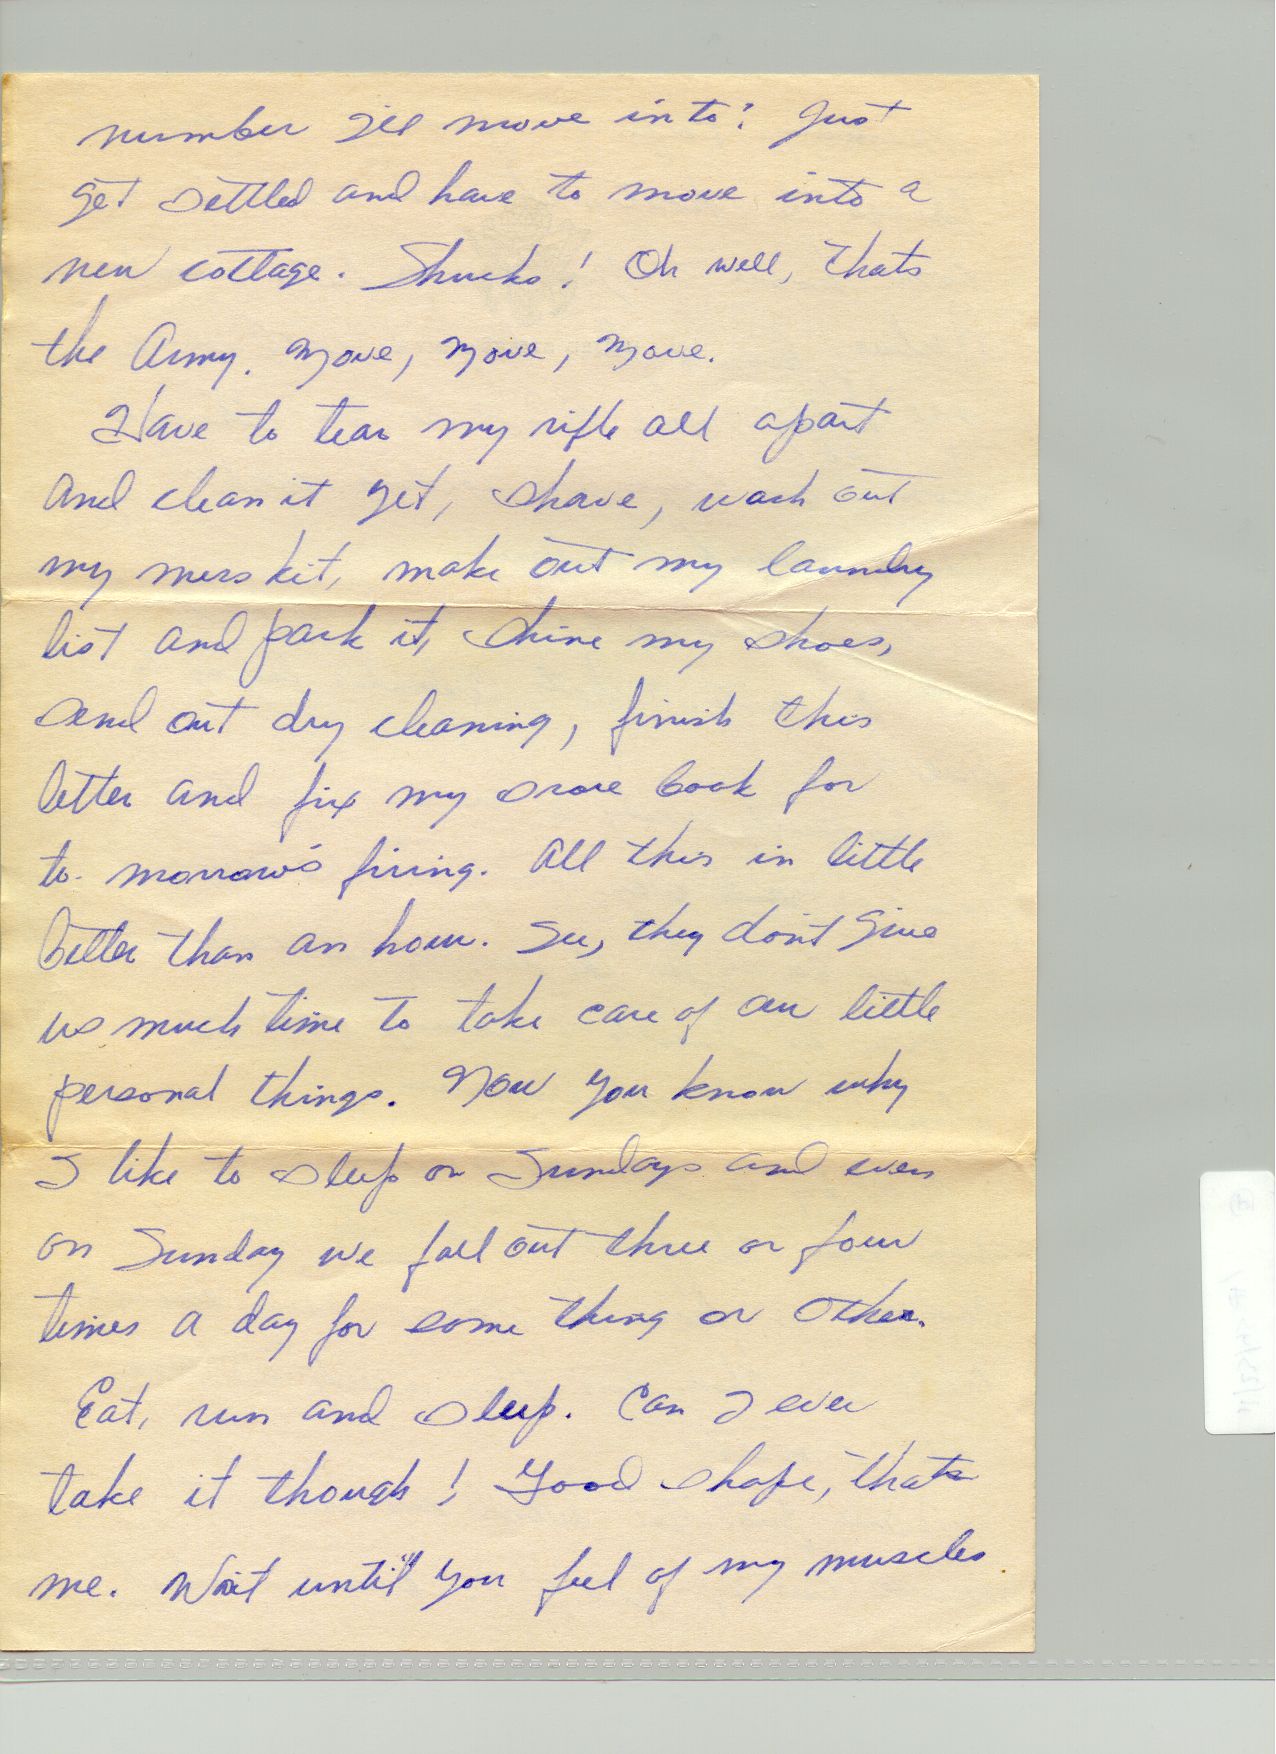 number I'll move into? Just
get settled and have to move into a
new cottage. Shucks! Oh well, thats
the Army. Move, Move, Move.
Have to tear my rifle all apart
and clean it yet, shave, wash out
my mess kit, make out my laundry
list and pack it, shine my shoes,
send out dry cleaning, finish this
letter and fix my score book for
to-morrow's firing. All this in little
better than an hour. See, they don't give
us much time to take care of our little
personal things. Now you know why
I like to sleep on Sundays and even
on Sunday we fall out three or four
times a day for some thing or other.
Eat, run and sleep. Can I ever
take it though! Good shape, thats
me. Wait until you feel of my muscles